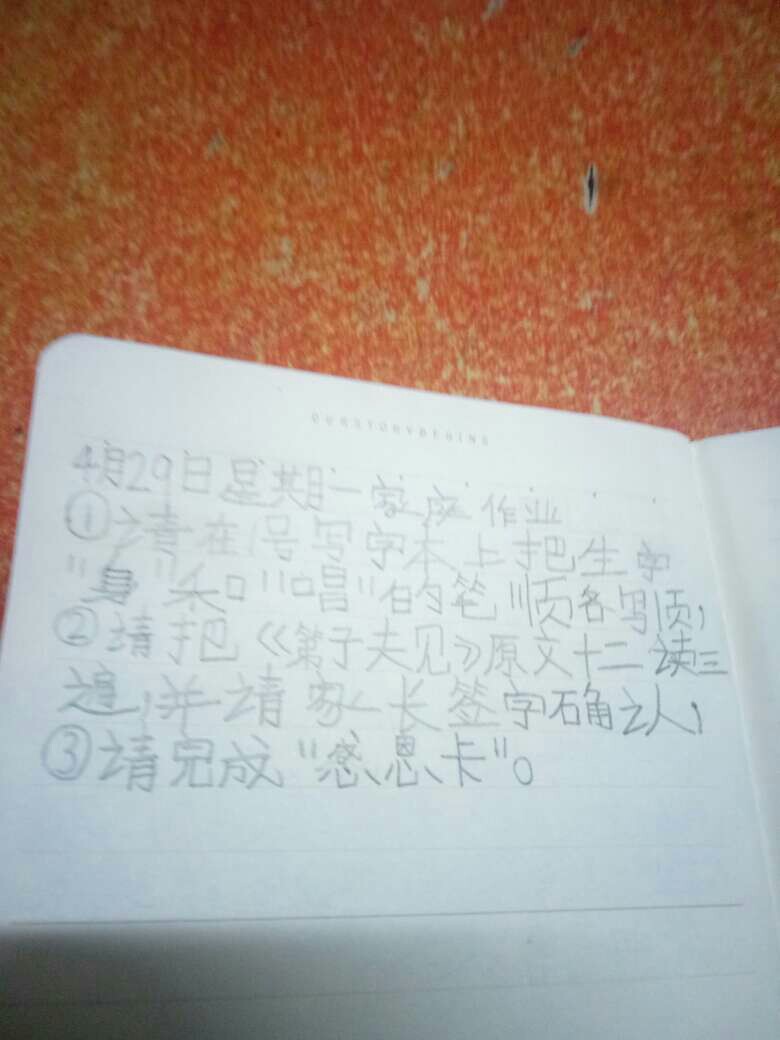 OURSTORYBEGINS
4月29日星期一家庭作业
①请在1号写字本上把生字
"身"和"唱"的笔顺各写页,
②请把《第子夫见》原文十二读三
遍,并请家长签字确认,
③请完成"感恩卡"。